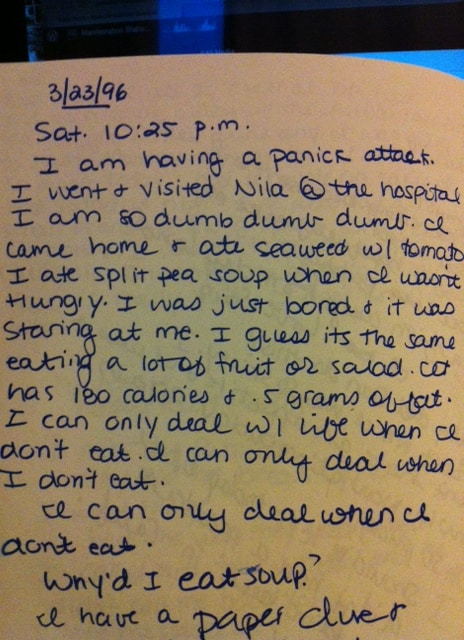 3/23/96
Sat. 10:25 p.m.
I am having a panick attack.
I went & visited Nila @ the hospital
I am so dumb dumb dumb. I
came home & ate seaweed w/ tomato
I ate split pea soup when I wasn't
Hungry. I was just bored & it was
Staring at me. I guess its the same
eating a lot of fruit or salad. It
has 180 calories & .5 grams of fat.
I can only deal w/ life when I
don't eat. I can only deal when
I don't eat.
I can only deal when I
don't eat.
Why'd I eat soup?
I have a paper due &